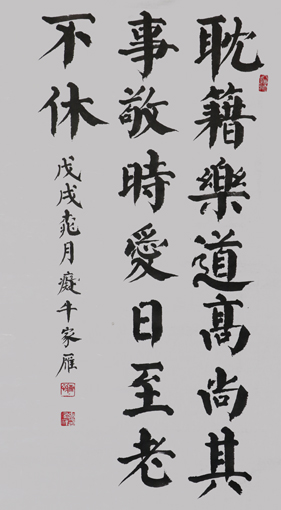 耽籍樂道高尚其
事敬時愛日至老
不休
戊戌桃月癡牛家雁